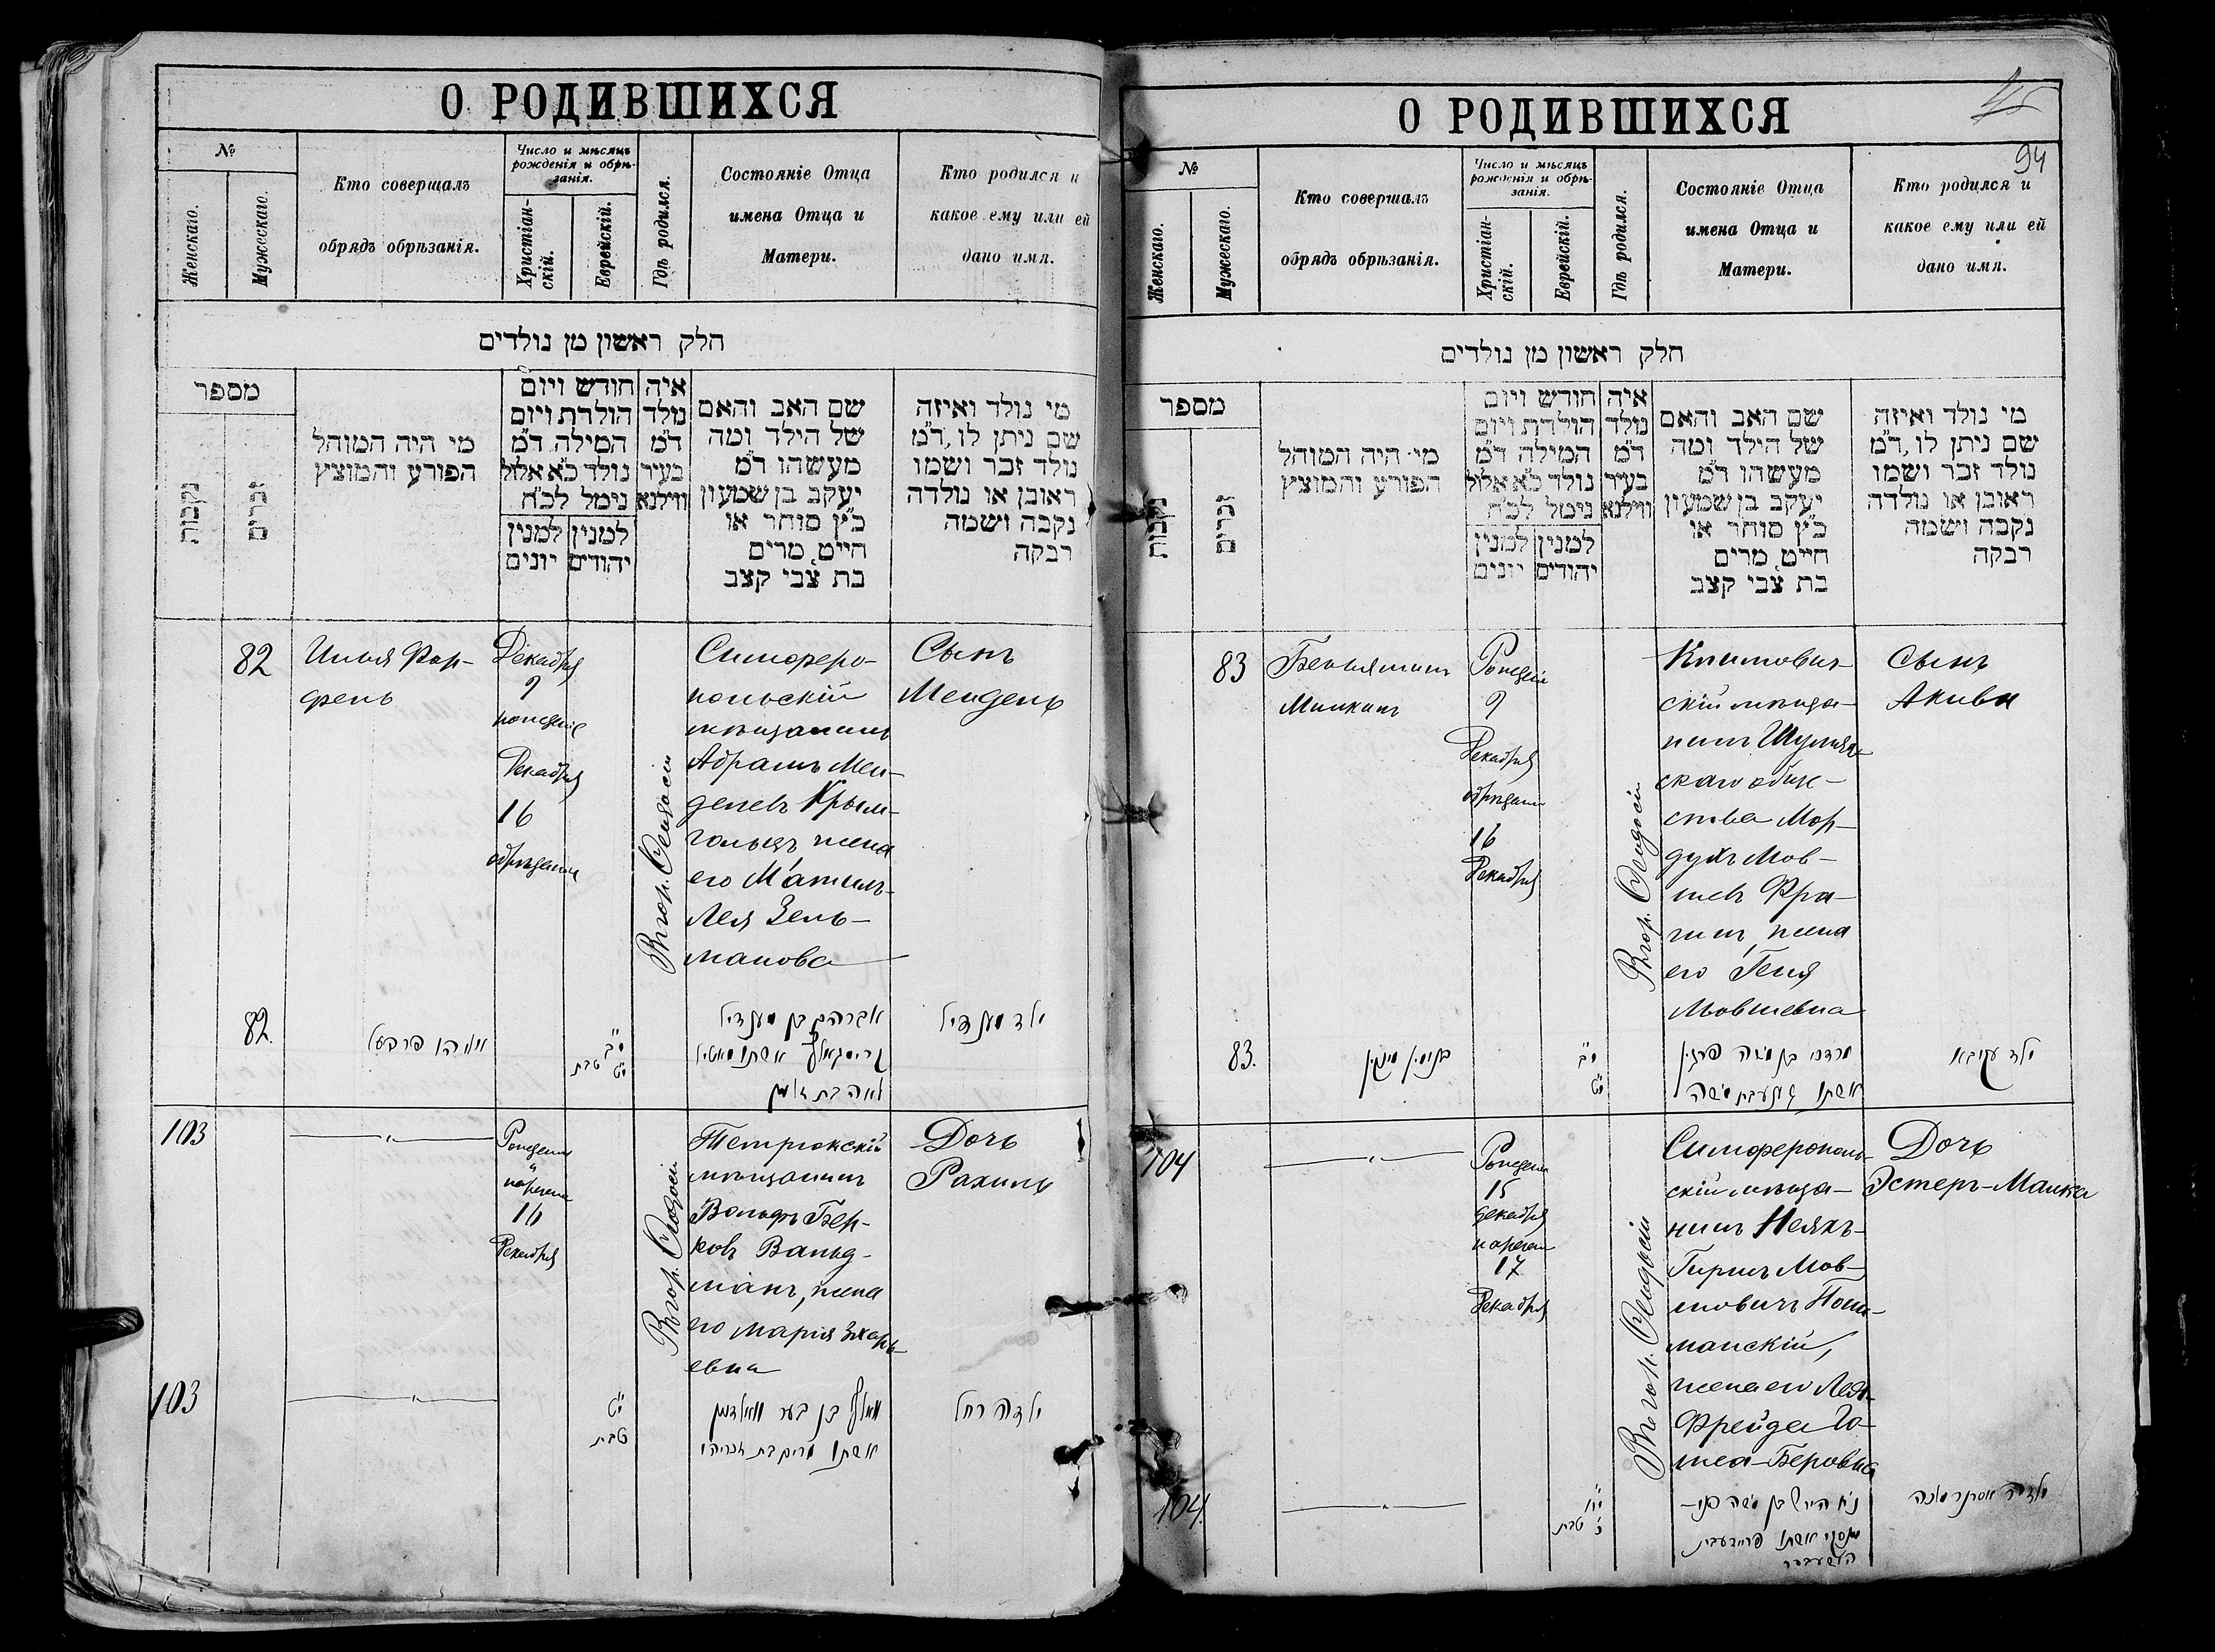 О РОДИВШИХСЯ
№
Женскаго.
Мужескаго.
Кто совершалъ
обрядъ обрѣзанія.
Число и мѣсяцъ
рожденія и обрѣ-
занія.
Христіан-
скій.
Еврейскій.
Гдѣ родился.
Состояніе Отца
имена Отца и
Матери.
Кто родился и
какое ему или ей
дано имя.
חלק ראשון מן נולדים
מספר
נקבות
זכרים
מי היה המוהל
הפורע והמוצץ
חודש ויום
הולדת ויום
המילה ד״מ
נולד כ״א אלול
נימל לכ״ח
למנין
יהודים
למנין
יונים
איה
נולד
ד״מ
בעיר
ווילנא
שם האב והאם
של הילד ומה
מעשהו ד״מ
יעקב בן שמעון
כ״ץ סוחר או
חייט מרים
בת צבי קצב
מי נולד ואיזה
שם ניתן לו, ד״מ
נולד זכר ושמו
ראובן או נולדה
נקבה וישמה
רבקה
82
Илья Фар-
фель
Декабря
9
Декабря
16
Въ гор. Ѳеодосіи
Симферо-
польскій
мѣщанинъ
Абрамъ Мен-
делевъ Крым-
гольцъ, жена
его Матиль-
Лея Зель-
манова
Сынъ
Мендель
82.
אליהו פרפעל
י״ב
י״ט טבת
אברהם בן מענדיל
קרימגאלץ אשתו מאטיל
לאה בת זלמן
ילד מענדיל
103
Рожденіе
16
Декабря
Въ гор. Ѳеодосіи
Темрюкскій
мѣщанинъ
Вольфъ Бер-
ковъ Вальд-
манъ, жена
его Марія Захарь-
евна
Дочь
Рахиль
103
י״ט
טבת
וואלף בן בער וואלדמן
אשתו מרים בת זכריהו
ילדה רחל
94
О РОДИВШИХСЯ
№
Женскаго.
Мужескаго.
Кто совершалъ
обрядъ обрѣзанія.
Число и мѣсяцъ
рожденія и обрѣ-
занія.
Христіан-
скій.
Еврейскій.
Гдѣ родился.
Состояніе Отца
имена Отца и
Матери.
Кто родился и
какое ему или ей
дано имя.
חלק ראשון מן נולדים
מספר
נקבות
זכרים
מי היה המוהל
הפורע והמוצץ
חודש ויום
הולדת ויום
המילה ד״מ
נולד כ״א אלול
נימל לכ״ח
למנין
יהודים
למנין
יונים
איה
נולד
ד״מ
בעיר
ווילנא
שם האב והאם
של הילד ומה
מעשהו ד״מ
יעקב בן שמעון
כ״ץ סוחר או
חייט מרים
בת צבי קצב
מי נולד ואיזה
שם ניתן לו, ד״מ
נולד זכר ושמו
ראובן או נולדה
נקבה וישמה
רבקה
83
Беньяминъ
Минкинъ
9
Декабря
16
Декабря
Въ гор. Ѳеодосіи
Климович-
скій мѣща-
нинъ Шумяч-
скаго обще-
ства Мор-
духъ Мов-
шевъ Фра-
гинъ, жена
его Геня
Мовшевна
Сынъ
Акива
83.
בנימין מינקין
י״ב
י״ט
מרדכי בן משה פרגין
אשתו געניע בת משה
ילד עקיבא
104
15
декабря
17
Декабря
Въ гор. Ѳеодосіи
Симферополь-
скій мѣща-
нинъ
Гиршъ Мов-
шовичъ
манскій,
жена его
Фрейда Го-
шеа-Беровна
Дочь
Эстеръ-Малка
104.
טבת
הירש בן משה
אשתו
ילדה אסתר מלכה